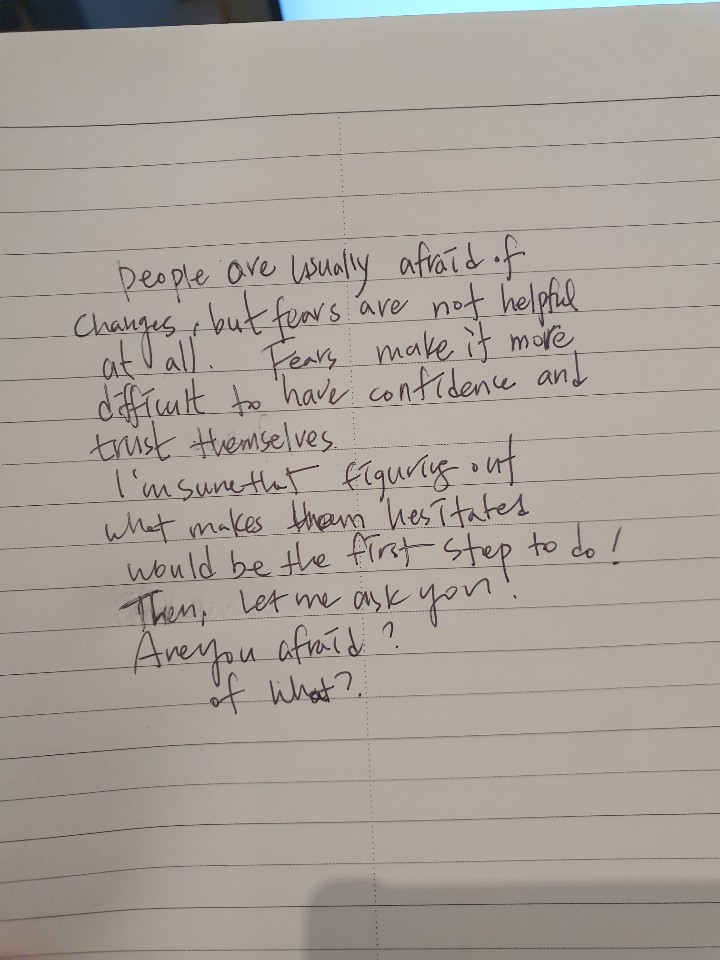 People are usually afraid of
changes, but fears are not helpful
at all. Fears make it more
difficult to have confidence and
trust themselves.
I'm sure that figuring out
what makes them hesitated
would be the first step to do!
Then, let me ask you!
Are you afraid?
of what?.